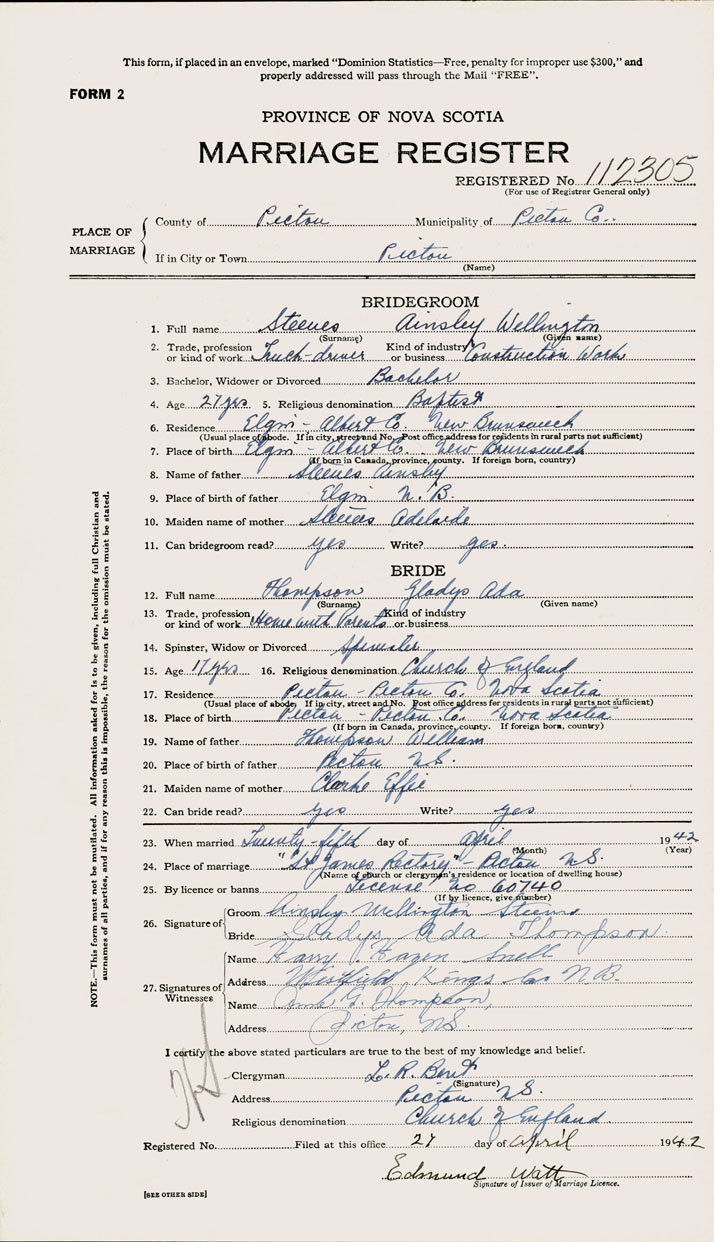 This form, if placed in an envelope, marked "Dominion Statistics—Free, penalty for improper use $300," and
properly addressed will pass through the Mail "FREE".
FORM 2
PROVINCE OF NOVA SCOTIA
MARRIAGE REGISTER
REGISTERED No. 112305
(For use of Registrar General only)
PLACE OF MARRIAGE
County of Pictou Municipality of Pictou Co.
If in City or Town Pictou
(Name)
BRIDEGROOM
1. Full name Steeves Ainsley Wellington
(Surname) (Given name)
2. Trade, profession or kind of work Truck-driver Kind of industry or business Construction Work
3. Bachelor, Widower or Divorced Bachelor
4. Age 27 yrs 5. Religious denomination Baptist
6. Residence Elgin - Albert Co. New Brunswick
(Usual place of abode. If in city, street and No. Post office address for residents in rural parts not sufficient)
7. Place of birth Elgin - Albert Co. New Brunswick
(If born in Canada, province, county. If foreign born, country)
8. Name of father Steeves Ainsley
9. Place of birth of father Elgin N.B.
10. Maiden name of mother Steeves Adelaide
11. Can bridegroom read? yes Write? yes.
BRIDE
12. Full name Thompson Gladys Ada
(Surname) (Given name)
13. Trade, profession or kind of work Home with Parents Kind of industry or business
14. Spinster, Widow or Divorced Spinster
15. Age 17 yrs 16. Religious denomination Church of England
17. Residence Pictou - Pictou Co. Nova Scotia
(Usual place of abode. If in city, street and No. Post office address for residents in rural parts not sufficient)
18. Place of birth Pictou - Pictou Co. Nova Scotia
(If born in Canada, province, county. If foreign born, country)
19. Name of father Thompson William
20. Place of birth of father Pictou N.S.
21. Maiden name of mother Clarke Effie
22. Can bride read? yes Write? yes
23. When married Twenty-fifth day of April 1942
(Month) (Year)
24. Place of marriage "St James Rectory" - Pictou N.S.
(Name of church or clergyman's residence or location of dwelling house)
25. By licence or banns License No 60740
(If by licence, give number)
26. Signature of
Groom Ainsley Wellington Steeves
Bride Gladys Ada Thompson
27. Signatures of Witnesses
Name Harry Hazen Snell
Address Westfield Kings Co. N.B.
Name G. Thompson,
Address Pictou, N.S.
I certify the above stated particulars are true to the best of my knowledge and belief.
Clergyman L. R. Bent
(Signature)
Address Pictou N.S.
Religious denomination Church of England
Registered No. Filed at this office 27 day of April 1942
Edmund Watt
Signature of Issuer of Marriage Licence.
[SEE OTHER SIDE]
NOTE.—This form must not be mutilated. All information asked for is to be given, including full Christian and
surnames of all parties, and if for any reason this is impossible, the reason for the omission must be stated.